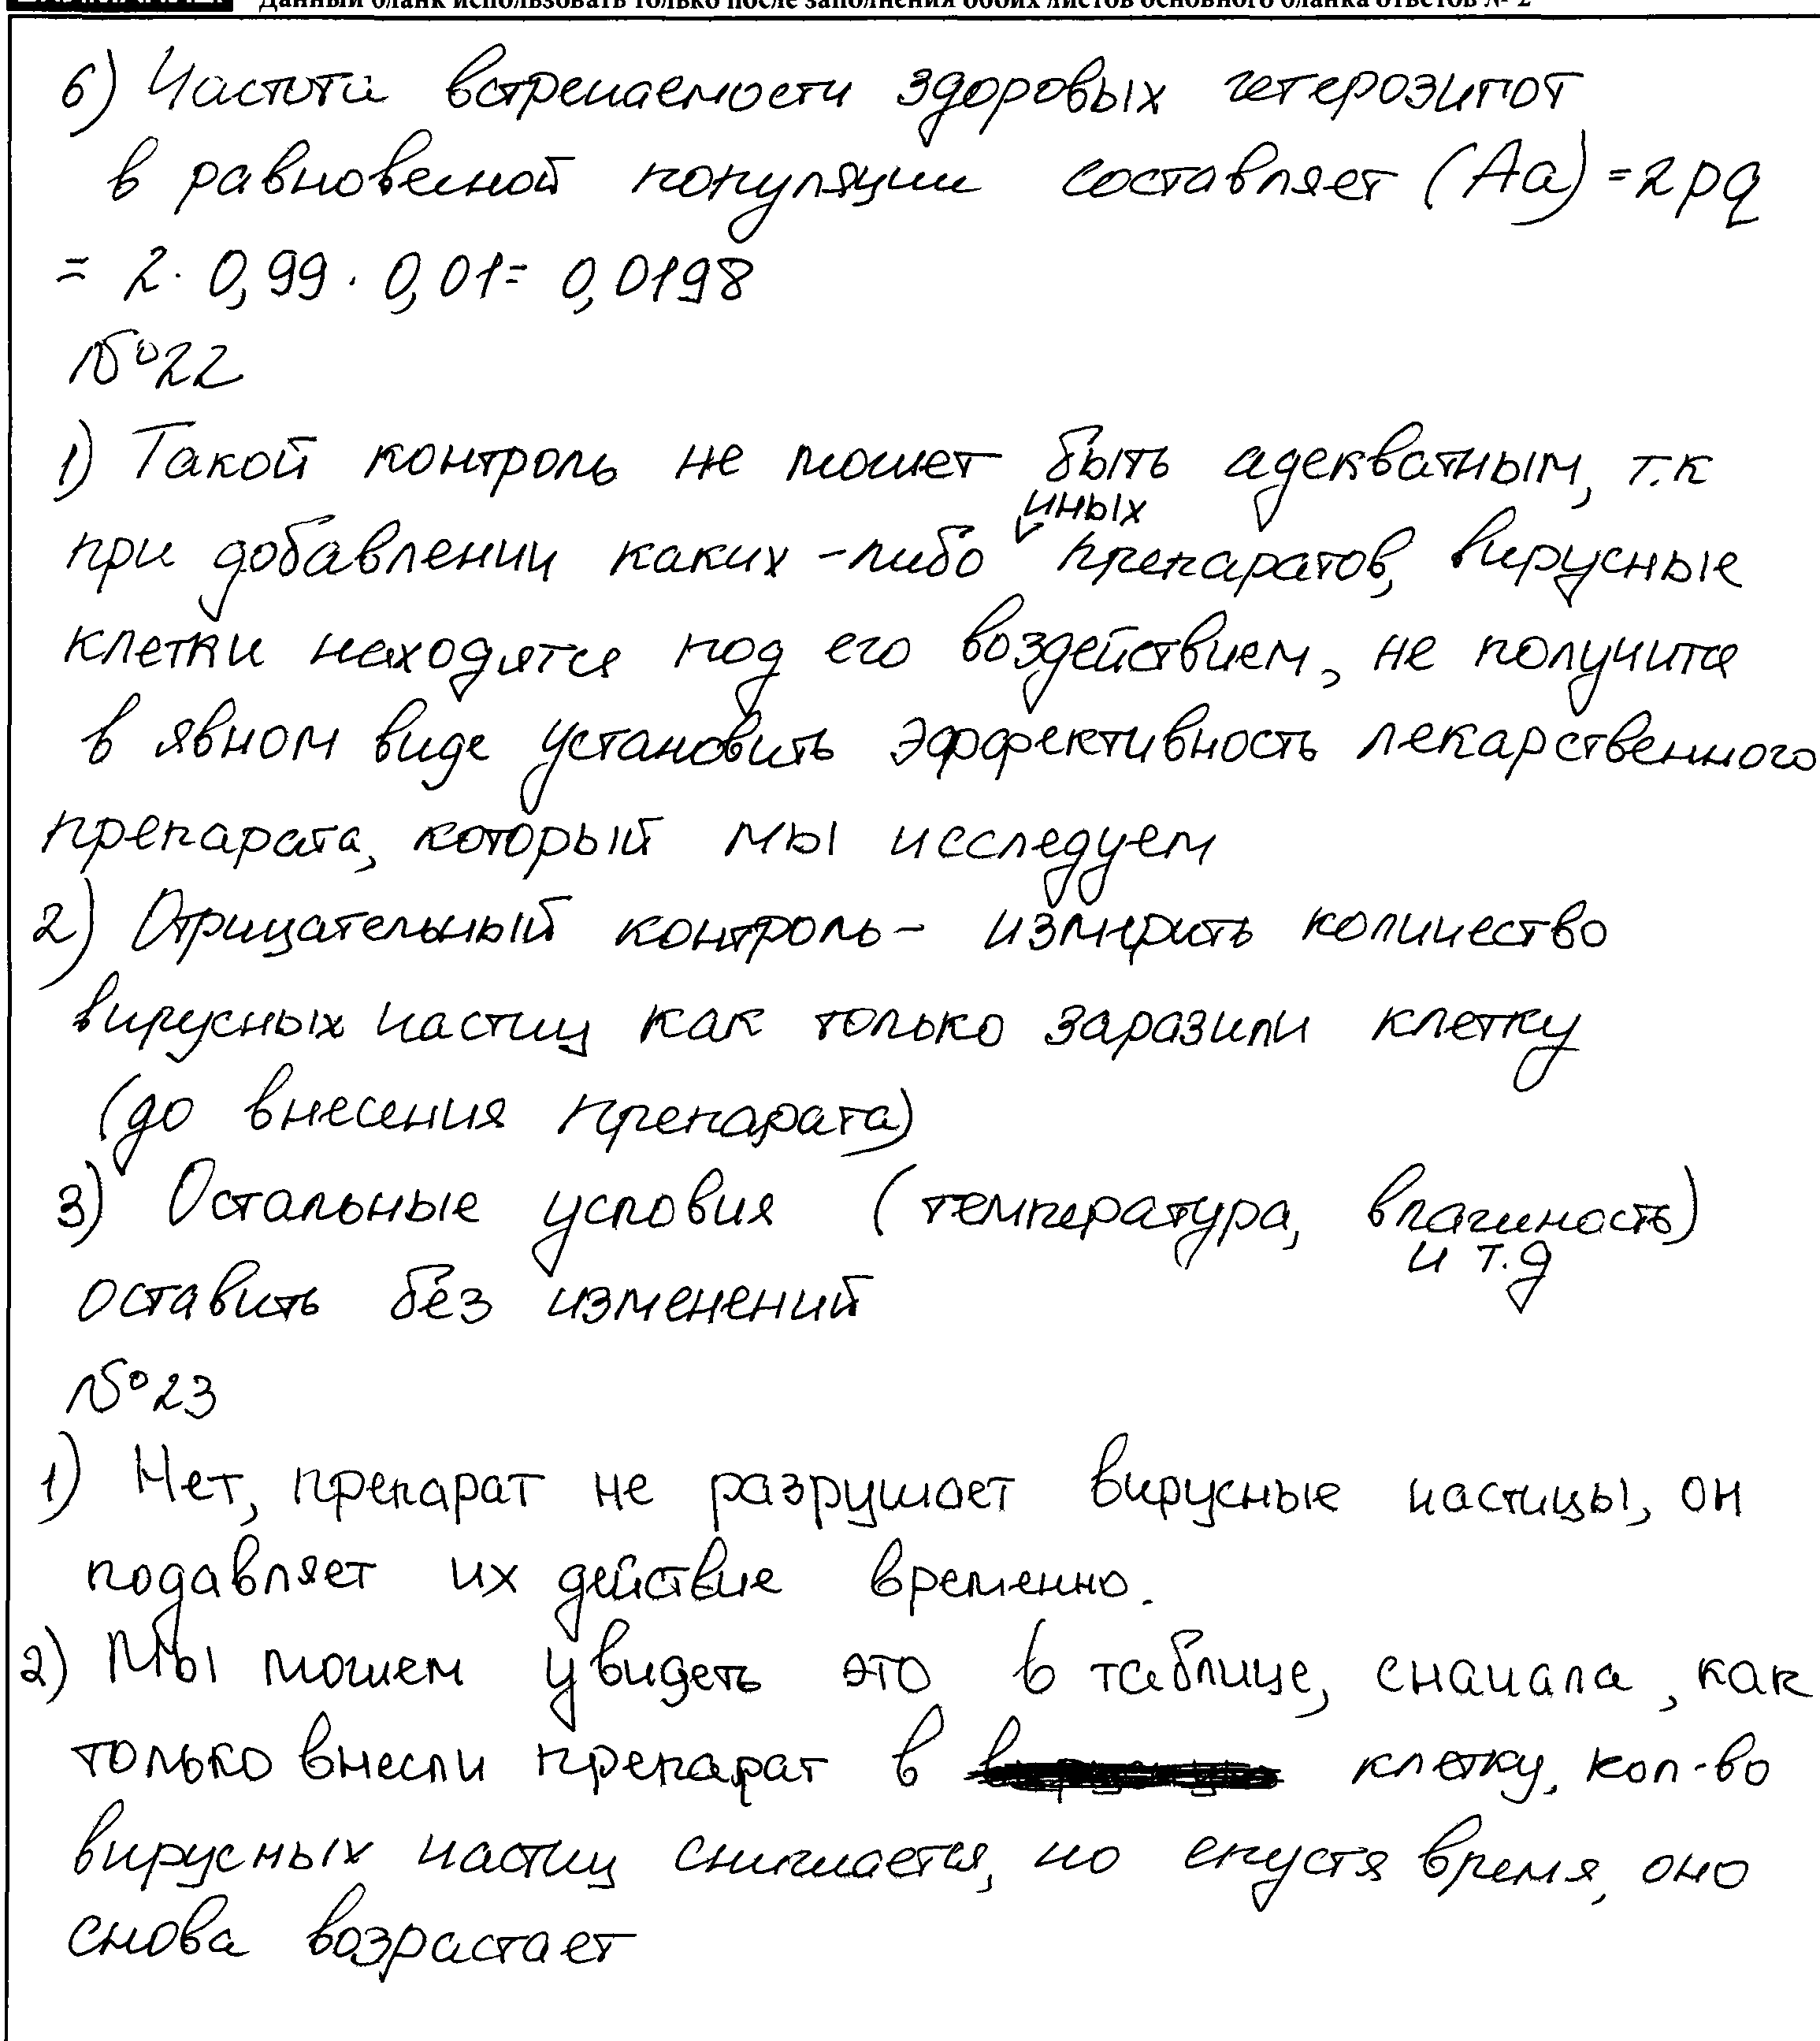 Данный бланк использовать только после заполнения обоих листов основного бланка ответов № 2
6) Частота встречаемости здоровых гетерозигот
в равновесной популяции составляет (Aa) = 2pq
= 2 · 0,99 · 0,01 = 0,0198
№22
1) Такой контроль не может быть адекватным, т.к
иных
при добавлении каких-либо препаратов, вирусные
клетки находятся под его воздействием, не получится
в явном виде установить эффективность лекарственного
препарата, который мы исследуем
2) Отрицательный контроль - измерить количество
вирусных частиц как только заразили клетку
(до внесения препарата)
3) Остальные условия (температура, влажность)
и т.д
оставить без изменений
№23
1) Нет, препарат не разрушает вирусные частицы, он
подавляет их действие временно.
2) Мы можем увидеть это в таблице, сначала, как
только внесли препарат в клетку, кол-во
вирусных частиц снижается, но спустя время, оно
снова возрастает